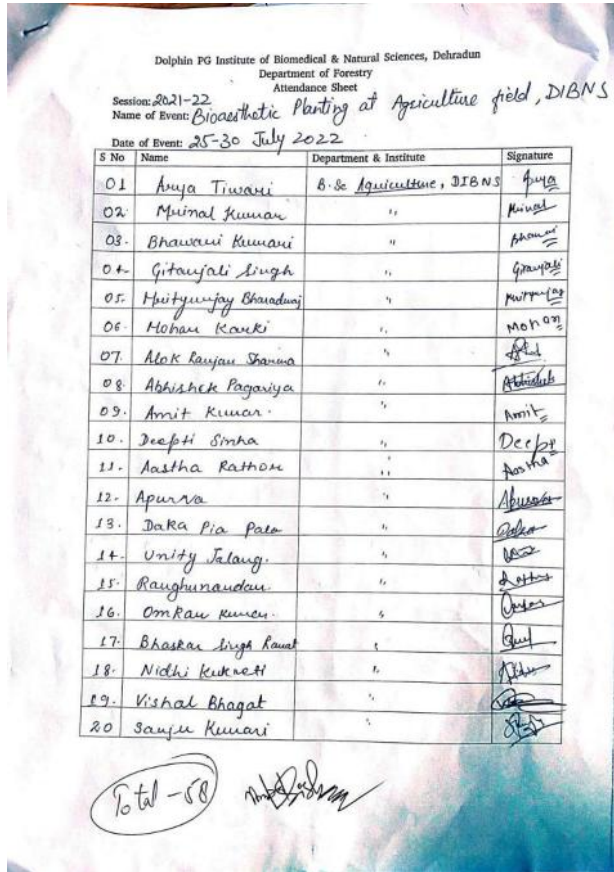 Dolphin PG Institute of Biomedical & Natural Sciences, Dehradun
Department of Forestry
Attendance Sheet
Session: 2021-22
Name of Event: Bioaesthetic Planting at Agriculture field, DIBNS
Date of Event: 25-30 July 2022
S No Name Department & Institute Signature
01 Arya Tiwari B.Sc Agriculture, DIBNS Arya
02. Mrinal Kumar " Mrinal
03. Bhawani Kumari " Bhawani
04. Gitanjali Singh " Gitanjali
05. Mrityunjay Bharadwaj " Mrityunjay
06. Mohan Karki " Mohan
07. Alok Ranjan Sharma "
08. Abhishek Pagariya " Abhishek
09. Amit Kumar. " Amit
10. Deepti Sinha " Deepti
11. Aastha Rathore " Aastha
12. Apurva " Apurva
13. Daka Pia Pala "
14. Unity Jalang. "
15. Raughunandan. "
16. Omkau "
17. Bhaskar Singh Rawat "
18. Nidhi Kukreti "
19. Vishal Bhagat "
20 Sanju Kumari "
Total - 58